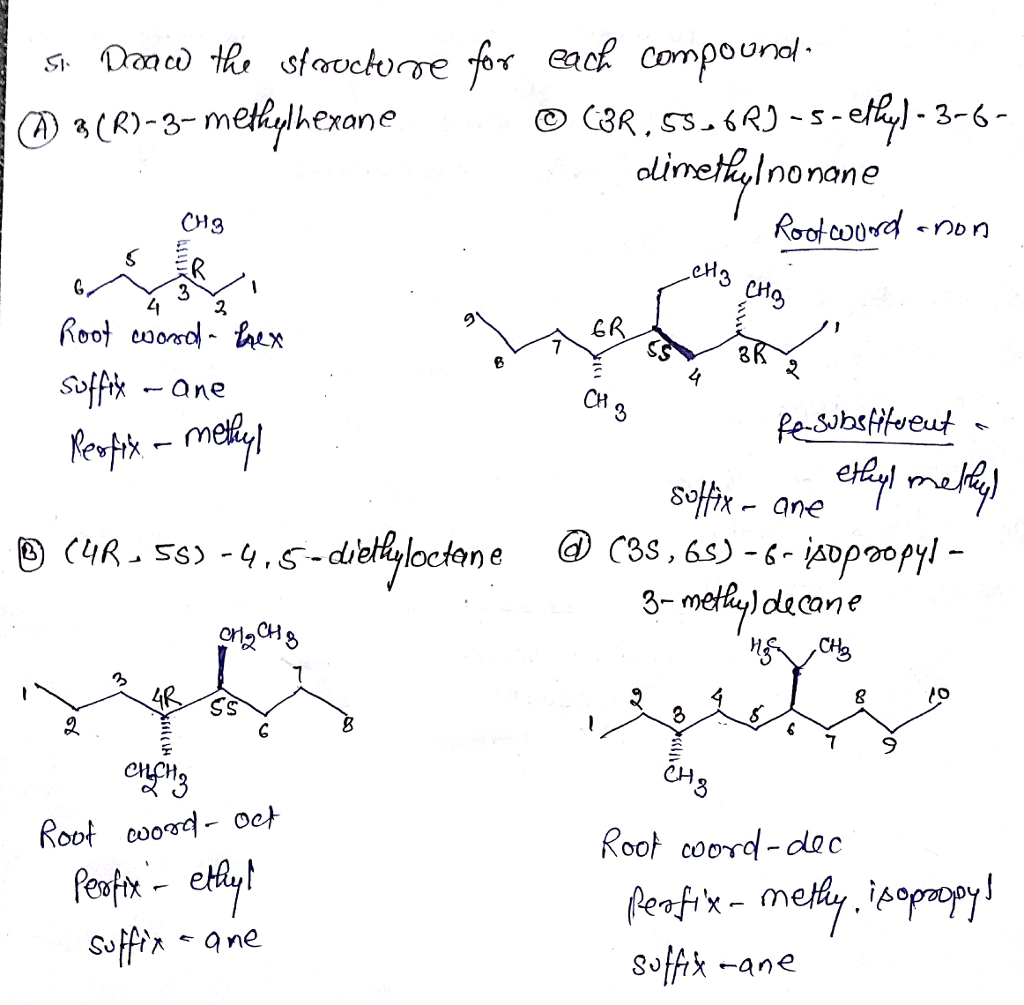 51. Draw the structure for each compound.
(A) 3(R)-3-methylhexane
CH3
R
6 5 4 3 2 1
Root word - hex
suffix - ane
Perfix - methyl
(C) (3R, 5S, 6R) - 5-ethyl-3-6-
dimethylnonane
Root word - non
CH3
CH3
9 8 7 6R 5S 4 3R 2 1
CH3
Pe-substituent -
ethyl methyl
suffix - ane
(B) (4R, 5S) - 4,5-diethyloctane
CH2CH3
1 2 3 4R 5S 6 7 8
CH2CH3
Root word - oct
Perfix - ethyl
suffix - ane
(d) (3S, 6S) - 6-isopropyl-
3-methyl decane
H3C CH3
1 2 3 4 5 6 7 8 9 10
CH3
Root word - dec
Perfix - methy, isopropyl
suffix - ane